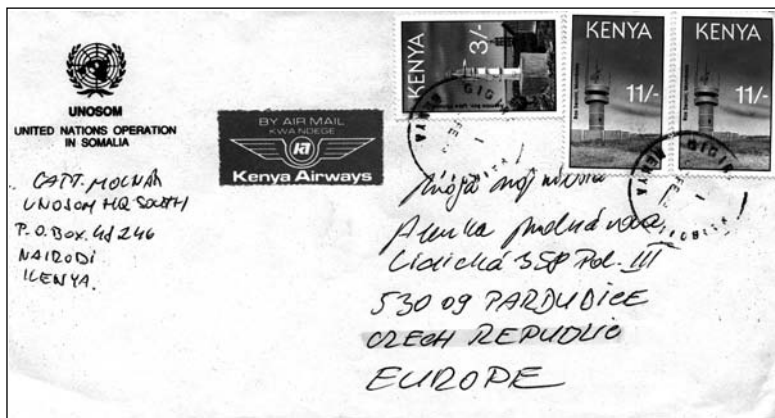 UNOSOM
UNITED NATIONS OPERATION
IN SOMALIA
CAPT. MOLNÁR
UNOSOM HQ SOUTH
P.O. BOX. 48246
NAIRODI
KENYA.
BY AIR MAIL
KWA NDEGE
Kenya Airways
KENYA
3/-
KENYA
11/-
KENYA
11/-
KENYA
KENYA
Alenka
Lidická 358 Pol. III
530 09 PARDUBICE
CZECH REPUBLIC
EUROPE